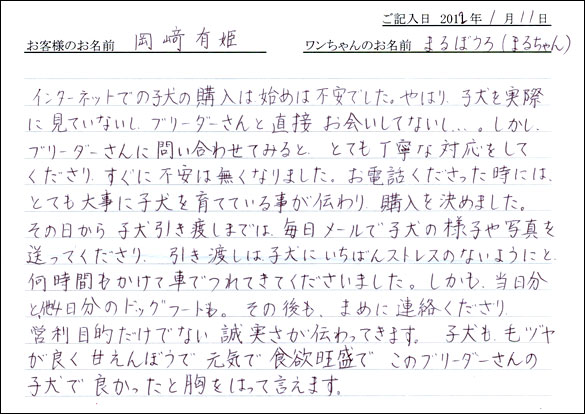 ご記入日 2012年 1月 11日
お客様のお名前 岡﨑有姫 ワンちゃんのお名前 まるぼうろ(まるちゃん)
インターネットでの子犬の購入は始めは不安でした。やはり、子犬を実際
に見ていないし、ブリーダーさんと直接お会いしてないし…。しかし、
ブリーダーさんに問い合わせてみると、とても丁寧な対応をして
くださり、すぐに不安は無くなりました。お電話くださった時には、
とても大事に子犬を育てている事が伝わり、購入を決めました。
その日から子犬引き渡しまでは、毎日メールで子犬の様子や写真を
送ってくださり、引き渡しは子犬にいちばんストレスのないようにと、
何時間もかけて車でつれてきてくださいました。しかも、当日分
と、他4日分のドッグフードも。その後も、まめに連絡くださり、
営利目的だけでない誠実さが伝わってきます。子犬も、毛ヅヤ
が良く甘えんぼうで元気で食欲旺盛で、このブリーダーさんの
子犬で良かったと胸をはって言えます。